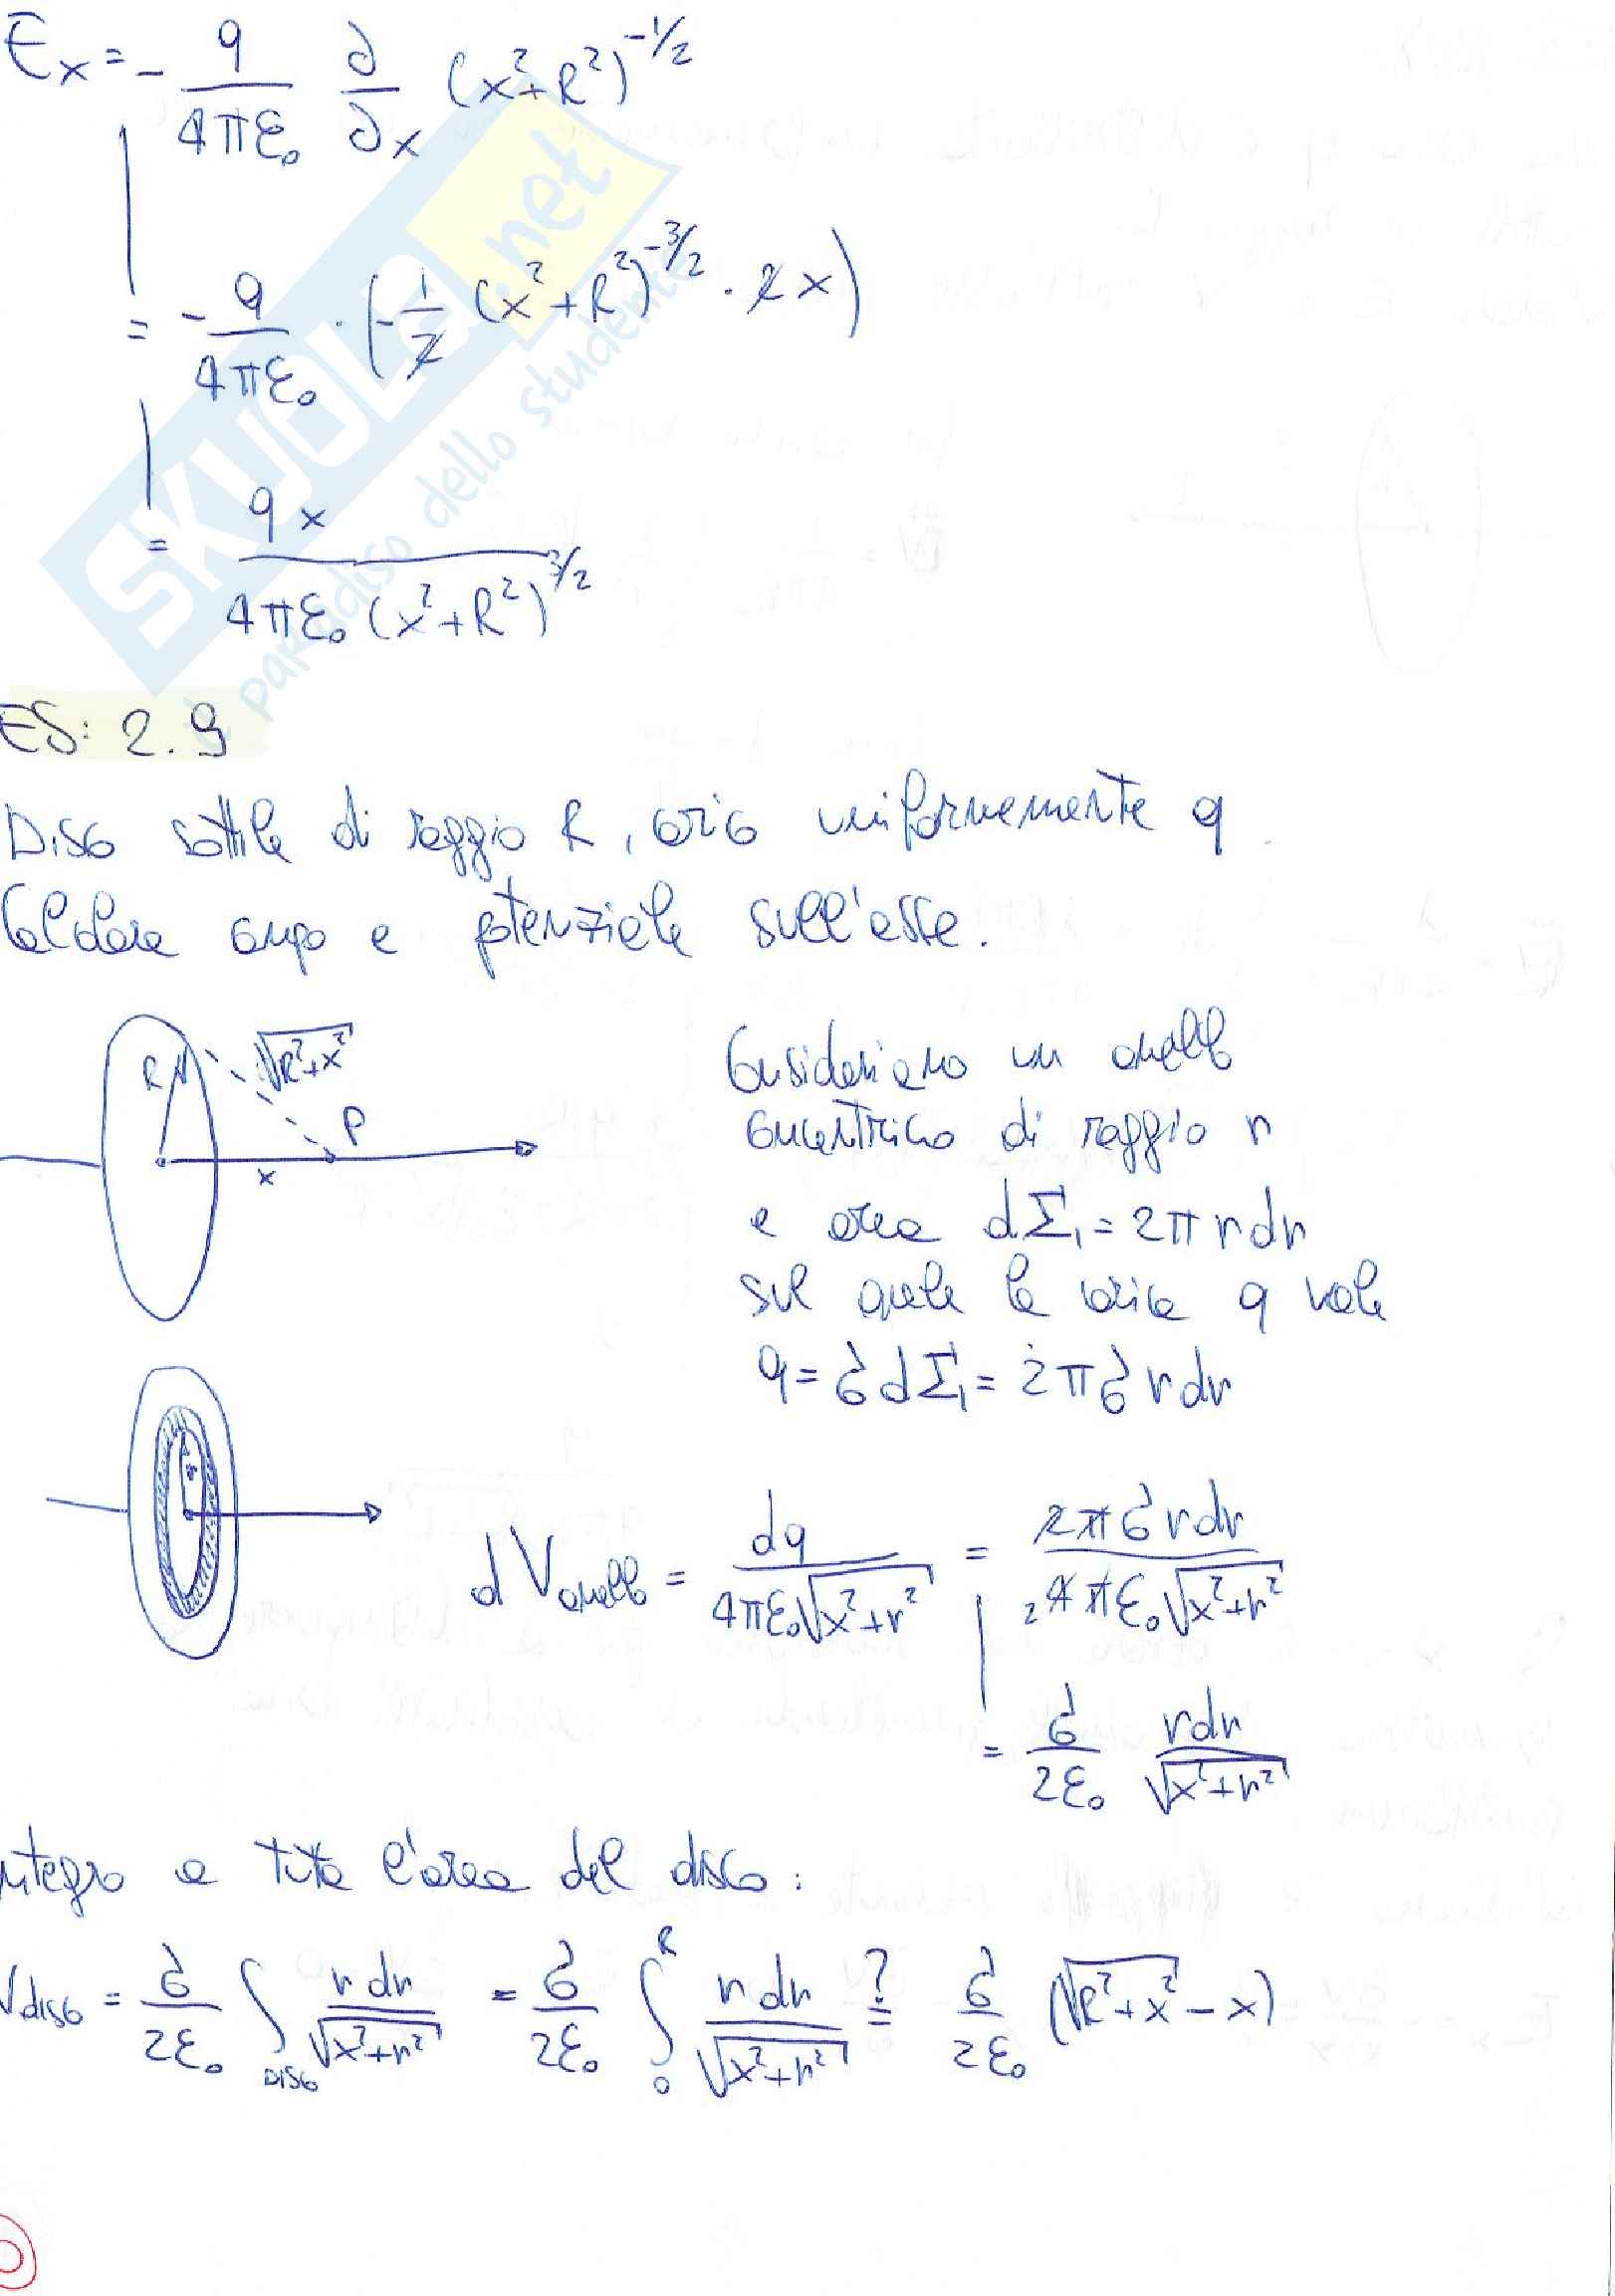 Ex = - q/4πε₀ ∂/∂x (x²+R²)^-1/2
= -q/4πε₀ · (-1/2 (x²+R²)^-3/2 · 2x)
= qx/4πε₀(x²+R²)^3/2
SKUOLA.net
il paradiso dello studente
ES: 2.9
Disco sottile di raggio R, carico uniformemente q.
Calcolare campo e potenziale sull'asse.
R √R²+x²
P
x
Consideriamo un anello
concentrico di raggio r
e area dΣ₁ = 2πrdr
sul quale la carica q vale
q = σdΣ₁ = 2πσrdr
r
dVanello = dq/4πε₀√x²+r² = 2πσrdr/4πε₀√x²+r²
2
= σ/2ε₀ rdr/√x²+r²
ntegro a tutta l'area del disco:
Vdisco = σ/2ε₀ ∫DISCO rdr/√x²+r² = σ/2ε₀ ∫₀^R rdr/√x²+r² ?= σ/2ε₀ (√R²+x² - x)